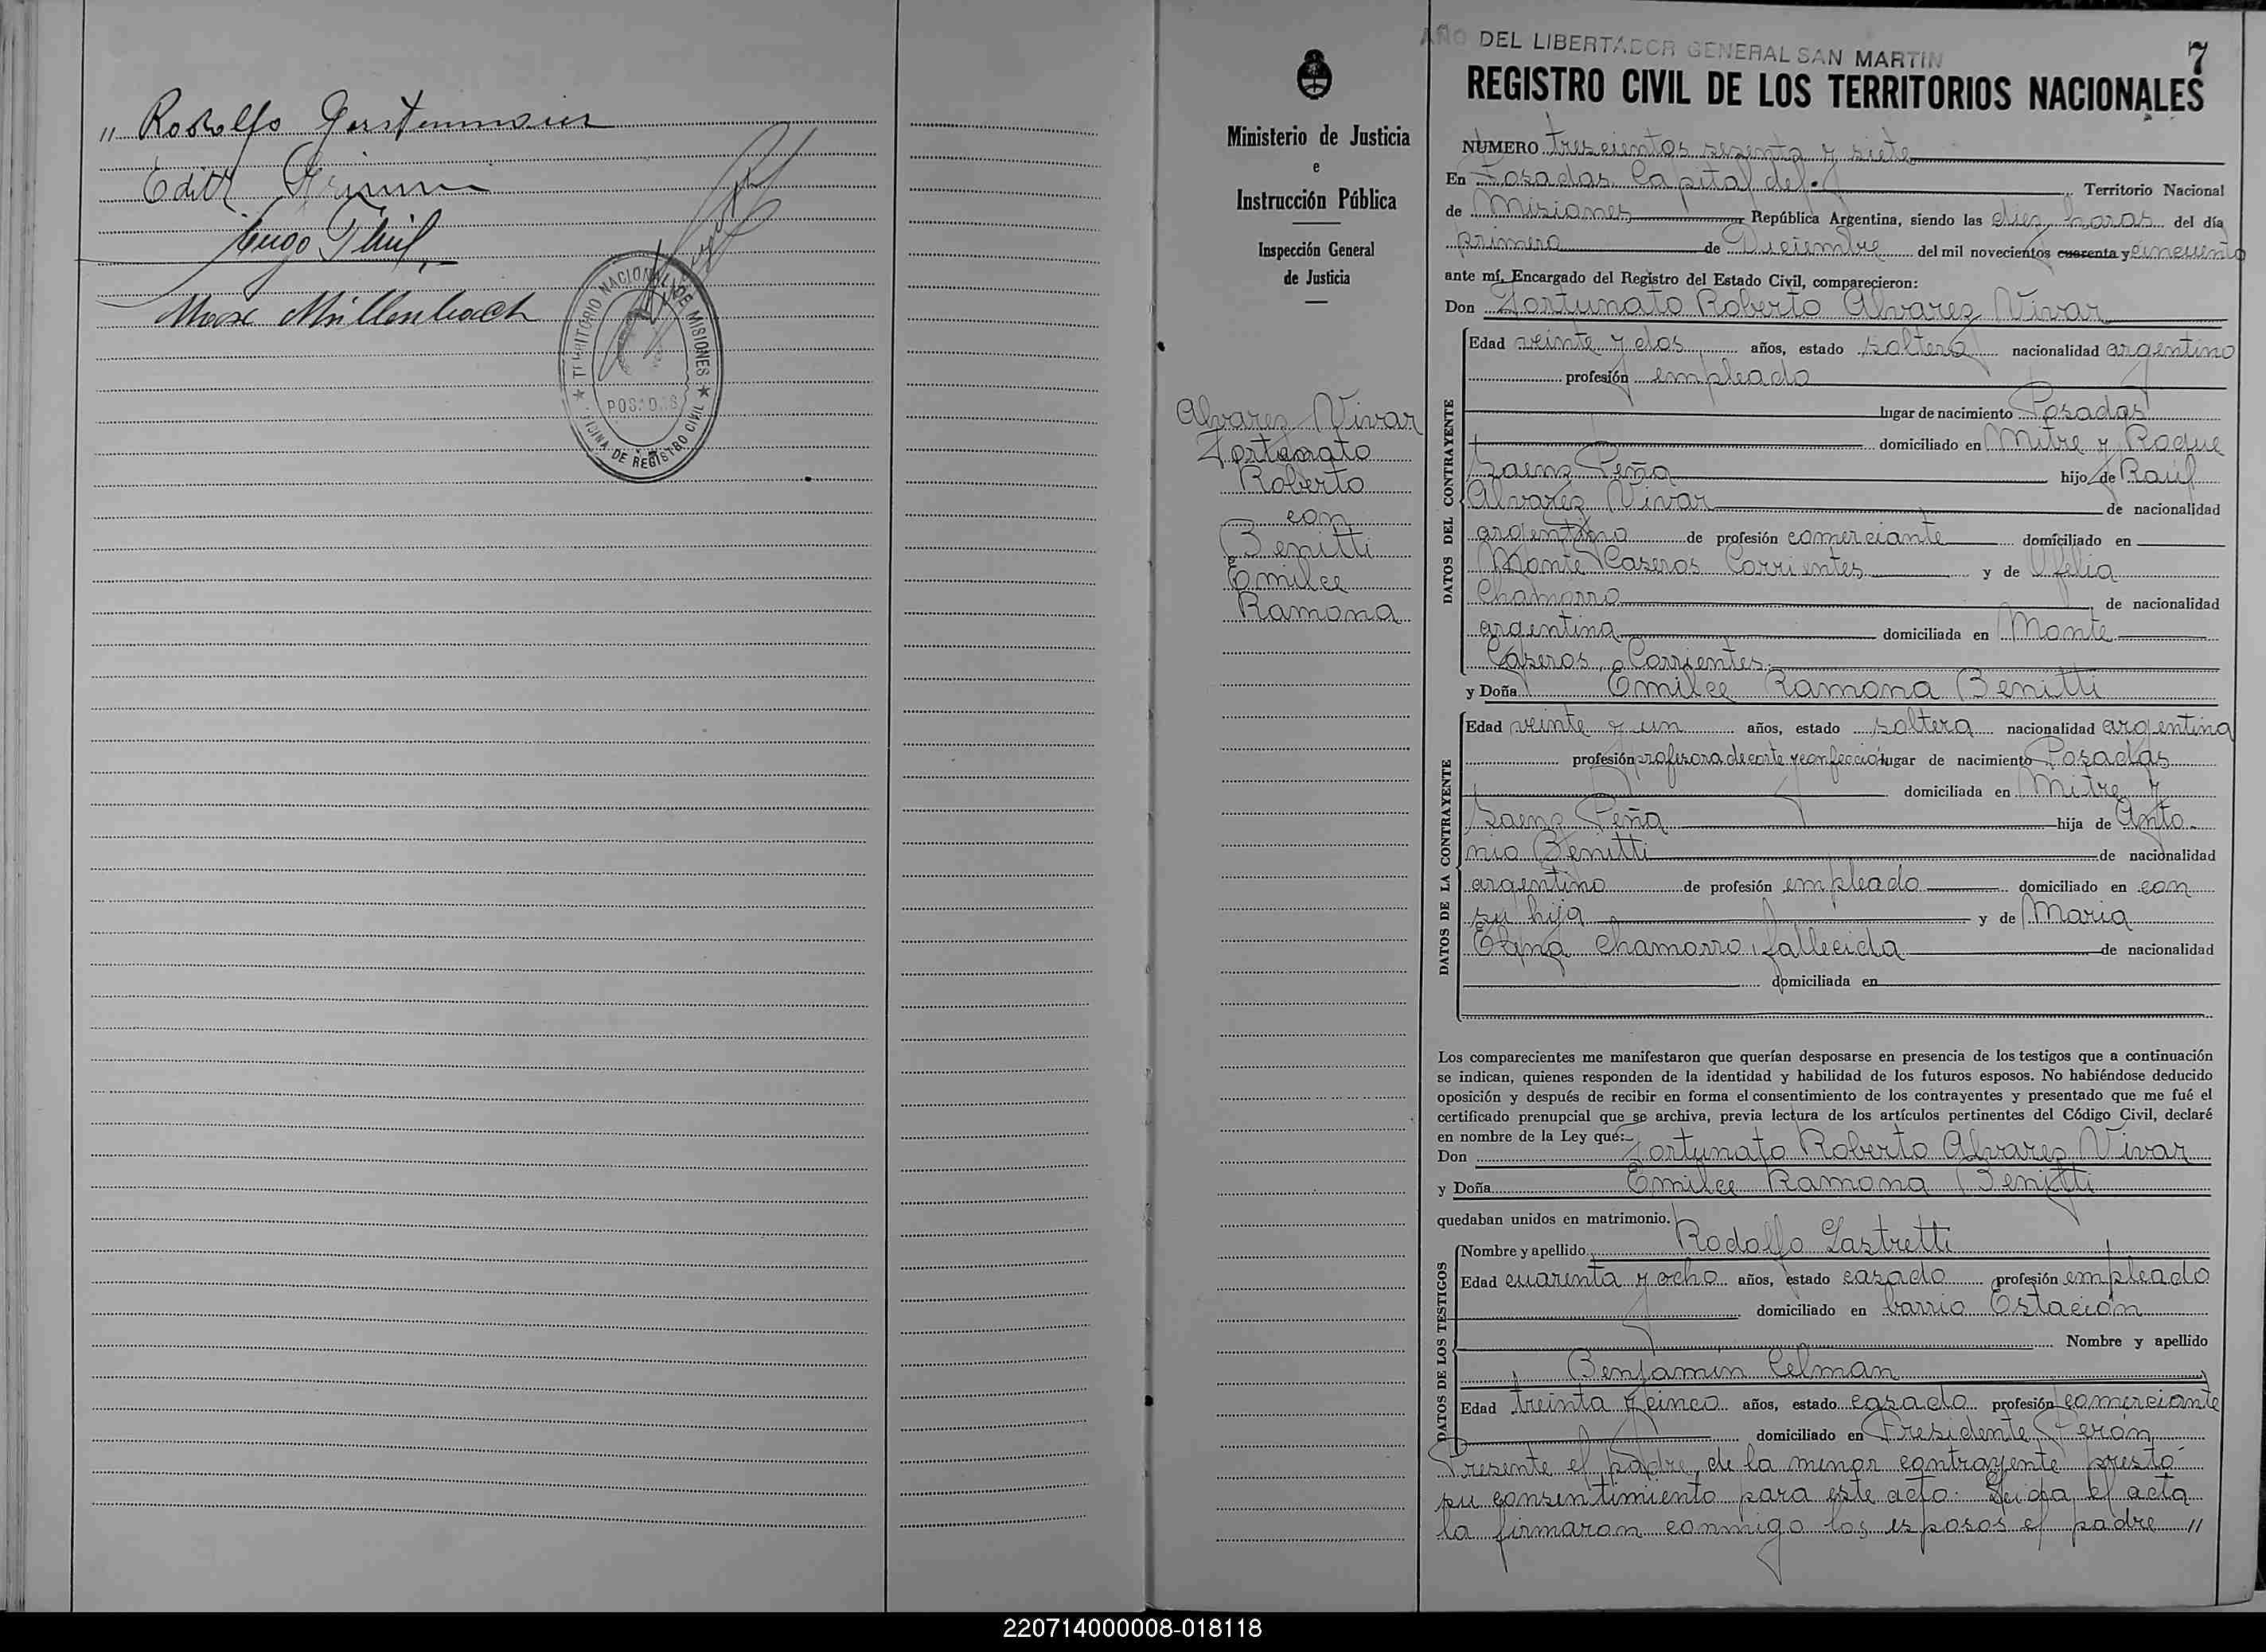 " Rodolfo Gerstenmaier
Edith
Hugo
Max Müllenbach
TERRITORIO NACIONAL DE MISIONES
POSADAS
OFICINA DE REGISTRO CIVIL
Ministerio de Justicia
e
Instrucción Pública
Inspección General
de Justicia
Alvarez Vivar
Fortunato
Roberto
con
Benitti
Emilce
Ramona
AÑO DEL LIBERTADOR GENERAL SAN MARTIN
7
REGISTRO CIVIL DE LOS TERRITORIOS NACIONALES
NUMERO trescientos sesenta y siete
En Posadas Capital del Territorio Nacional
de Misiones República Argentina, siendo las diez horas del día
primero de Diciembre del mil novecientos cuarenta y cincuenta
ante mí, Encargado del Registro del Estado Civil, comparecieron:
Don Fortunato Roberto Alvarez Vivar
DATOS DEL CONTRAYENTE
Edad veinte y dos años, estado soltero nacionalidad argentino
profesión empleado
lugar de nacimiento Posadas
domiciliado en Mitre y Roque
Saenz Peña hijo de Raúl
Alvarez Vivar de nacionalidad
argentino de profesión comerciante domiciliado en
Monte Caseros Corrientes y de Ofelia
Chamorro de nacionalidad
argentina domiciliada en Monte
Caseros, Corrientes.
y Doña Emilce Ramona Benitti
DATOS DE LA CONTRAYENTE
Edad veinte y un años, estado soltera nacionalidad argentina
profesión profesora de corte y confección lugar de nacimiento Posadas
domiciliada en Mitre y
Saenz Peña hija de Anto-
nio Benitti de nacionalidad
argentino de profesión empleado domiciliado en con
su hija y de Maria
Elena Chamorro, fallecida de nacionalidad
domiciliada en
Los comparecientes me manifestaron que querían desposarse en presencia de los testigos que a continuación
se indican, quienes responden de la identidad y habilidad de los futuros esposos. No habiéndose deducido
oposición y después de recibir en forma el consentimiento de los contrayentes y presentado que me fué el
certificado prenupcial que se archiva, previa lectura de los artículos pertinentes del Código Civil, declaré
en nombre de la Ley qué:
Don Fortunato Roberto Alvarez Vivar
y Doña Emilce Ramona Benitti
quedaban unidos en matrimonio.
DATOS DE LOS TESTIGOS
Nombre y apellido Rodolfo Lastretti
Edad cuarenta y ocho años, estado casado profesión empleado
domiciliado en barrio Estación
Nombre y apellido
Benjamin Celman
Edad treinta y cinco años, estado casado profesión comerciante
domiciliado en Presidente Perón
Presente el padre de la menor contrayente prestó
su consentimiento para este acto. Leida el acta
la firmaron conmigo los esposos el padre "
220714000008-018118